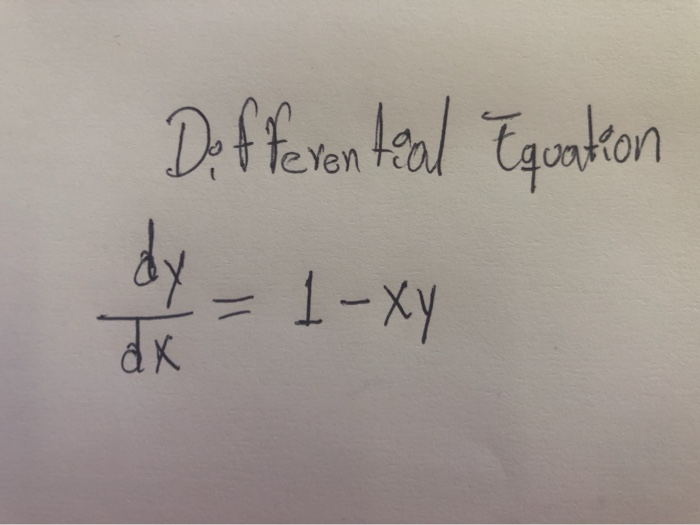 Differential Equation
dy/dx = 1 - xy